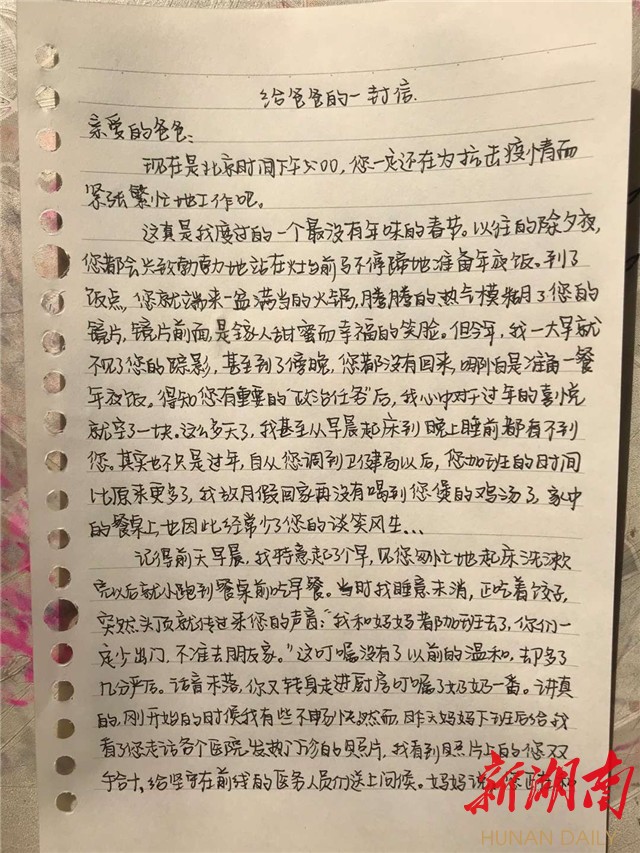 给爸爸的一封信.
亲爱的爸爸:
现在是北京时间下午5:00,您一定还在为抗击疫情而
紧张繁忙地工作吧。
这真是我度过的一个最没有年味的春节。以往的除夕夜,
您都会兴致勃勃地站在灶台前马不停蹄地准备年夜饭。到了
饭点,您就端来一盆满当的火锅,腾腾的热气模糊了您的
镜片,镜片前面是全家人甜蜜而幸福的笑脸。但今年,我一大早就
不见了您的踪影,甚至到了傍晚,您都没有回来,哪怕是准备一餐
年夜饭。得知您有重要的“政治任务”后,我心中对于过年的喜悦
就空了一块。这么多天了,我甚至从早晨起床到晚上睡前都看不到
您。其实也不只是过年,自从您调到卫健局以后,您加班的时间
比原来更多了,我放月假回家再没有喝到您煲的鸡汤了,家中
的餐桌上也因此经常少了您的谈笑风生...
记得前天早晨,我特意起了个早,见您匆忙地起床洗漱
完以后就小跑到餐桌前吃早餐。当时我睡意未消,正吃着饺子,
突然头顶就传过来您的声音:“我和妈妈都加班去了,你们一
定少出门,不准去朋友家。”这叮嘱没有了以前的温和,却多了
几分严厉。话音未落,你又转身走进厨房叮嘱了奶奶一番。讲真
的,刚开始的时候我有些不畅快,然而,昨天妈妈下班后给我
看了您走访各个医院发热门诊的照片,我看到照片上的您双
手合十,给坚守在前线的医务人员们送上问候。妈妈说,您
新湖南
HUNAN DAILY